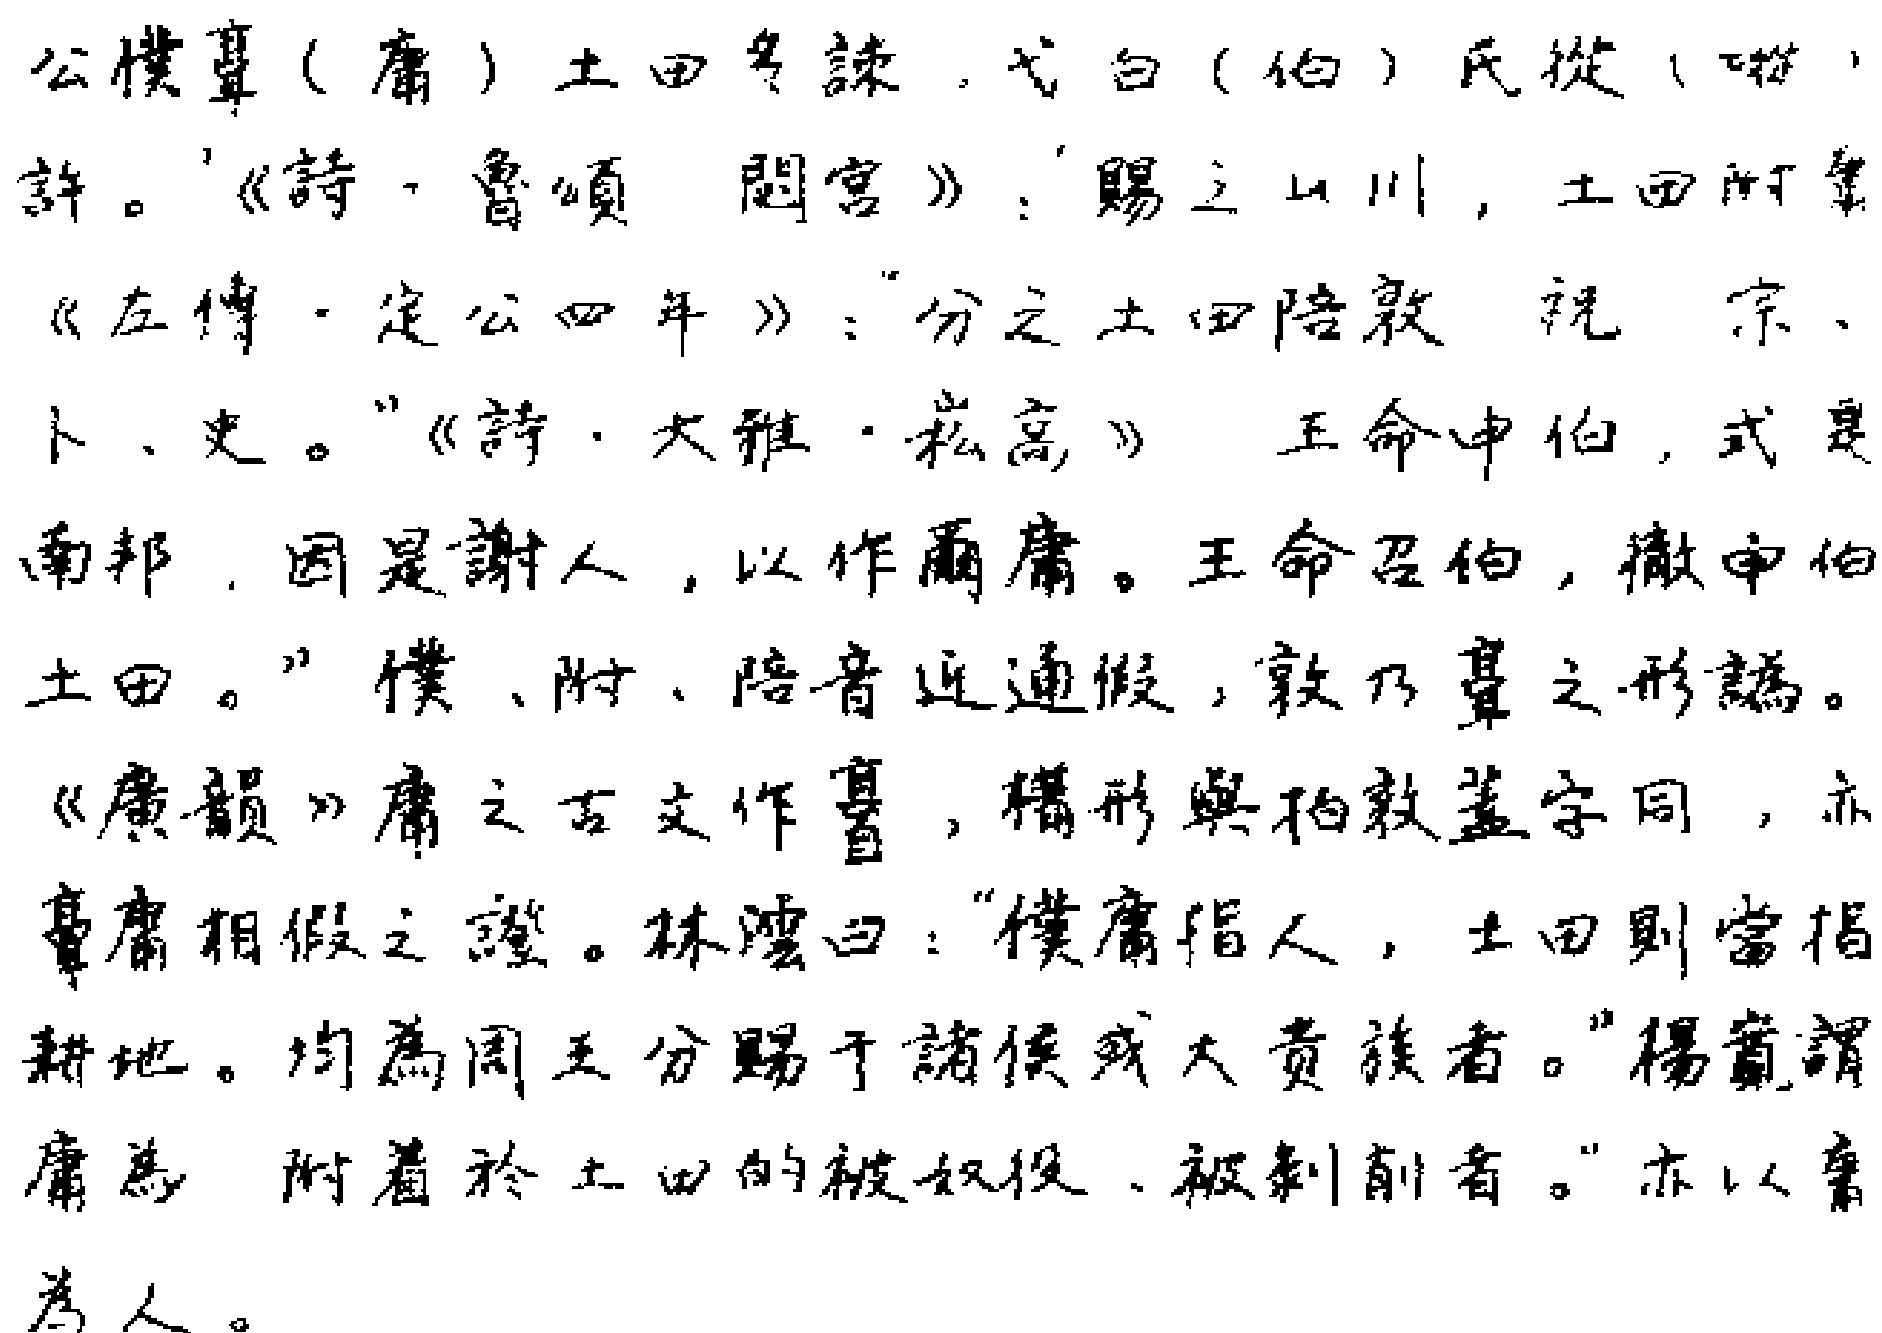 公僕𩫖（庸）土田多諫，弋白（伯）氏從（縱）
許。"《詩·魯頌 閟宮》："賜之山川，土田附庸
《左傳·定公四年》："分之土田陪敦 祝 宗、
卜、史。"《詩·大雅·崧高》 王命申伯，式是
南邦，因是謝人，以作爾庸。王命召伯，徹申伯
土田。"僕、附、陪音近通假，敦乃𩫖之形譌。
《廣韻》庸之古文作𩫖，構形與拍敦蓋字同，亦
𩫖庸相假之證。林澐曰："僕庸指人，土田則當指
耕地。均為周王分賜于諸侯或大貴族者。"楊寬謂
庸為 附著於土田的被奴役、被剝削者。"亦以庸
為人。